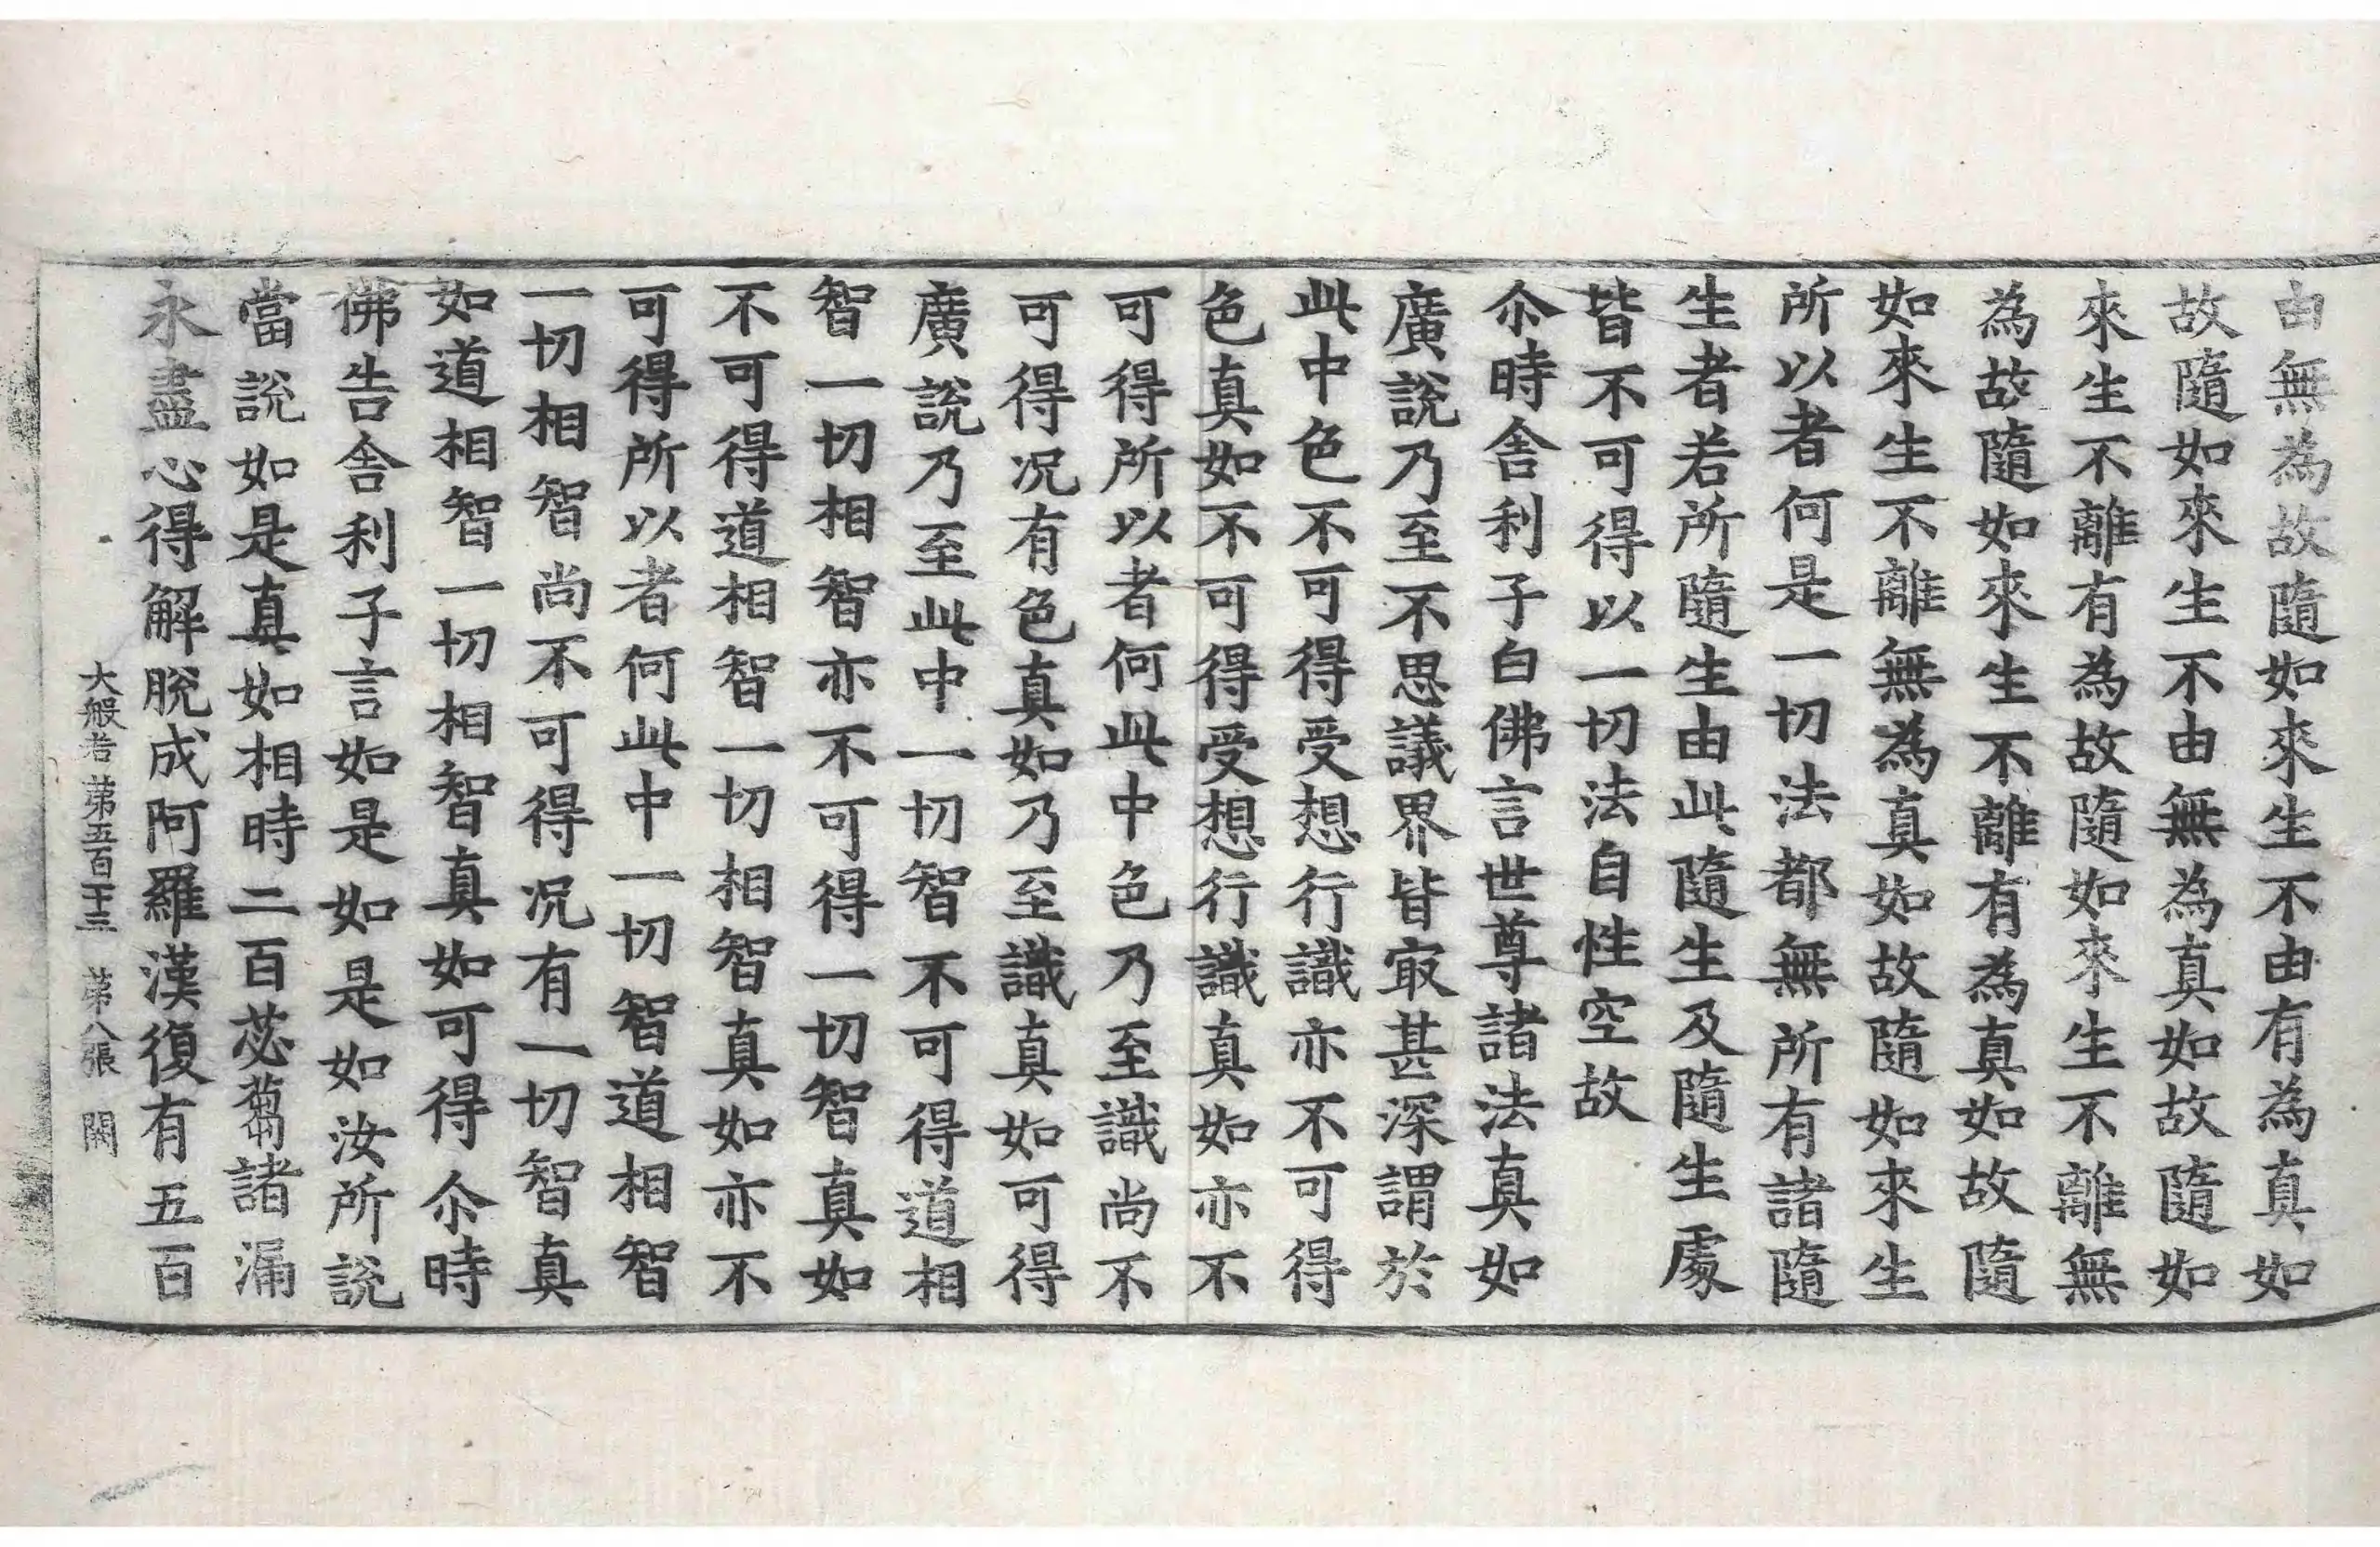 由無為故隨如來生不由有為真如
故隨如來生不由無為真如故隨如
來生不離有為故隨如來生不離無
為故隨如來生不離有為真如故隨
如來生不離無為真如故隨如來生
所以者何是一切法都無所有諸隨
生者若所隨生由此隨生及隨生處
皆不可得以一切法自性空故
尒時舍利子白佛言世尊諸法真如
廣說乃至不思議界皆㝡甚深謂於
此中色不可得受想行識亦不可得
色真如不可得受想行識真如亦不
可得所以者何此中色乃至識尚不
可得况有色真如乃至識真如可得
廣說乃至此中一切智不可得道相
智一切相智亦不可得一切智真如
不可得道相智一切相智真如亦不
可得所以者何此中一切智道相智
一切相智尚不可得况有一切智真
如道相智一切相智真如可得尒時
佛告舍利子言如是如是如汝所說
當說如是真如相時二百苾蒭諸漏
永盡心得解脫成阿羅漢復有五百
大般若 第五百十三 第八張 闕